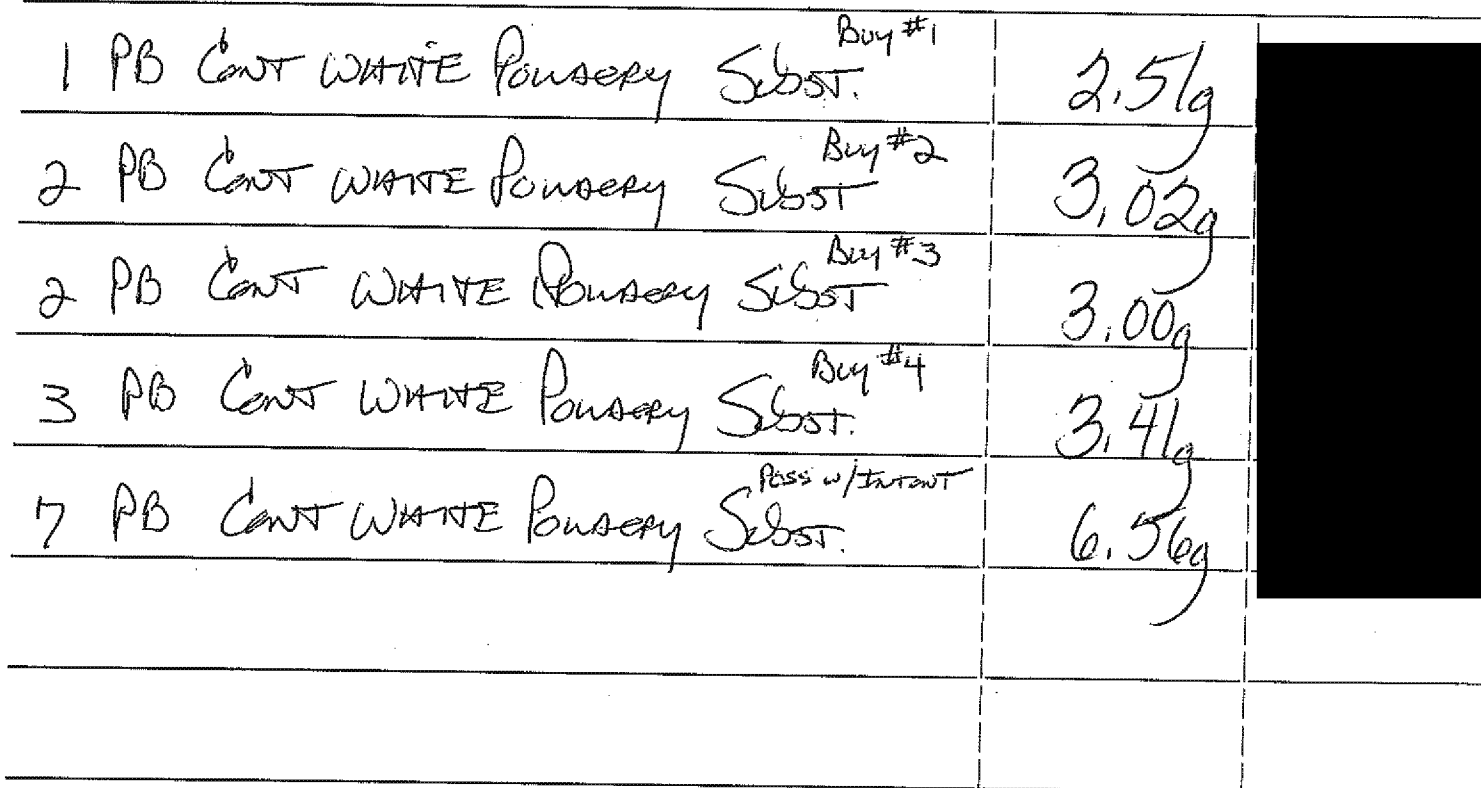 1 PB CONT WHITE POWDERY SUBST. Buy #1 2.51g
2 PB CONT WHITE POWDERY SUBST Buy #2 3.02g
2 PB CONT WHITE POWDERY SUBST Buy #3 3.00g
3 PB CONT WHITE POWDERY SUBST. Buy #4 3.41g
7 PB CONT WHITE POWDERY SUBST. Poss w/INTENT 6.56g